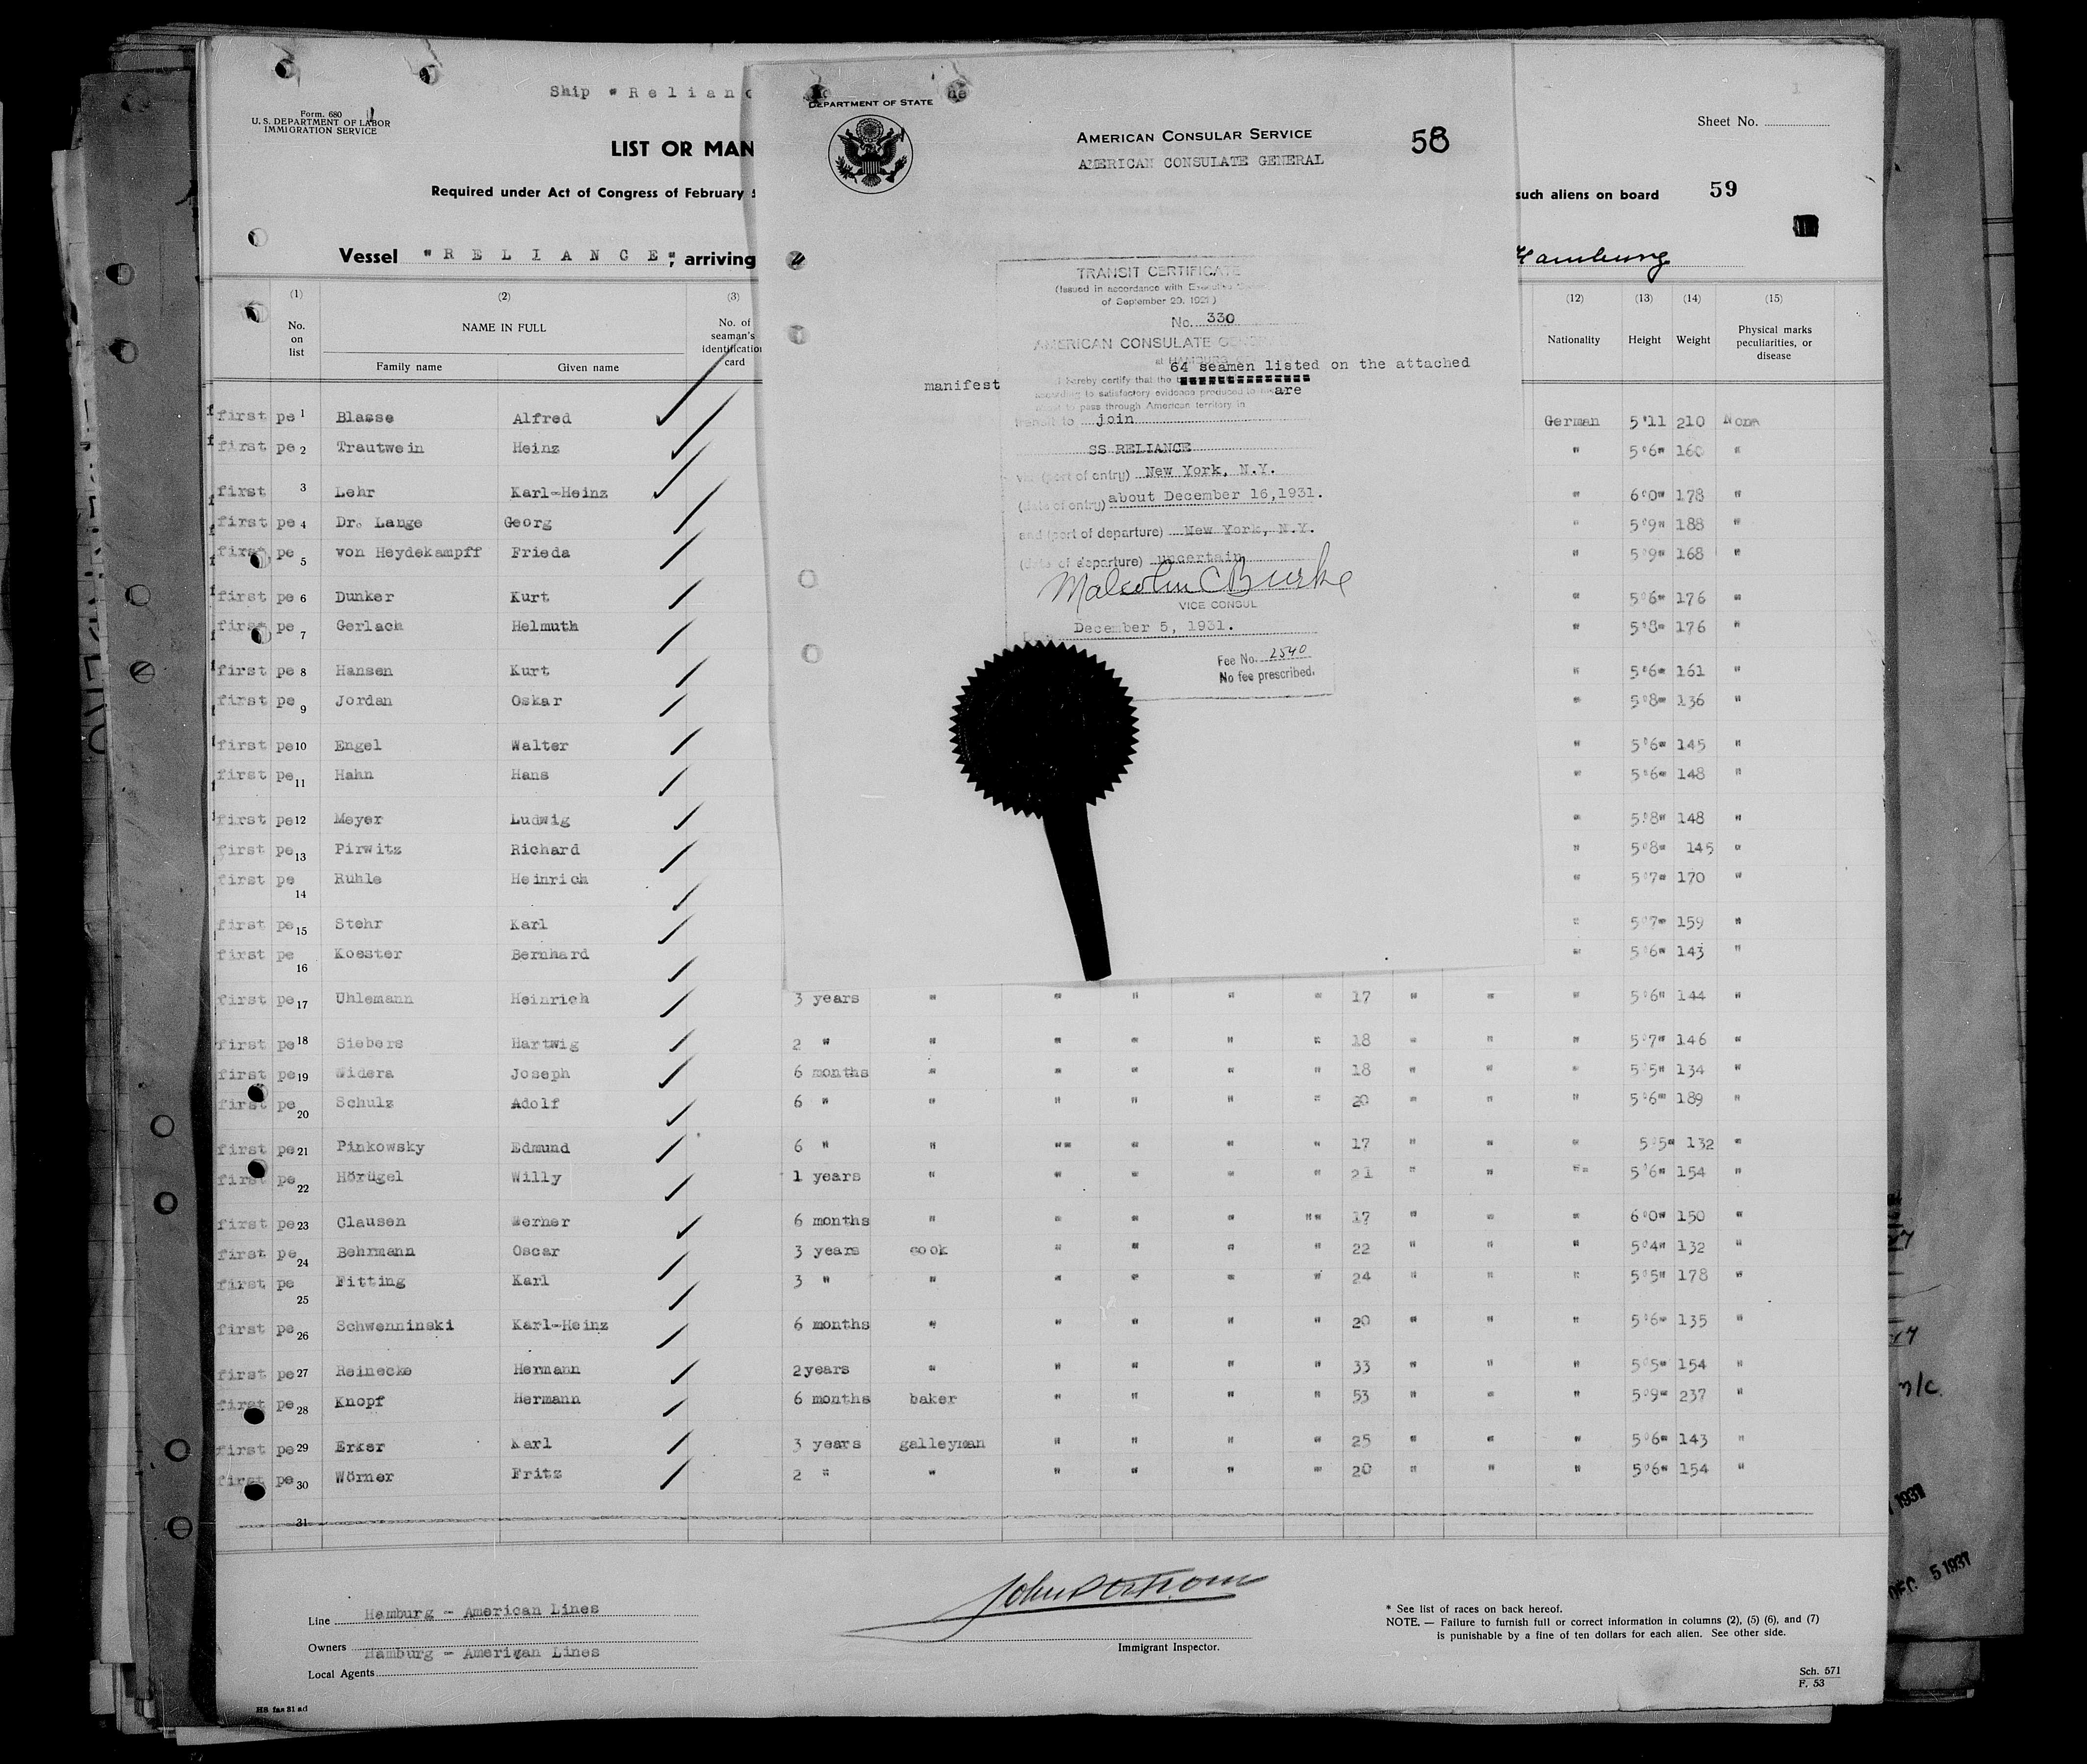 Ship "Relianc
Form. 680
U. S. DEPARTMENT OF LABOR
IMMIGRATION SERVICE
LIST OR MAN
Required under Act of Congress of February 5
Vessel "RELIANCE"; arriving
Sheet No.
such aliens on board 59
Hamburg
DEPARTMENT OF STATE
AMERICAN CONSULAR SERVICE
AMERICAN CONSULATE GENERAL
58
TRANSIT CERTIFICATE
(Issued in accordance with Executive
of September 29, 1921)
No. 330
AMERICAN CONSULATE GENERAL
at HAMBURG
64 seamen listed on the attached
manifest hereby certify that the
according to satisfactory evidence produced to are
to pass through American territory in
transit to join
SS RELIANCE
via (port of entry) New York, N.Y.
(date of entry) about December 16,1931.
and (port of departure) New York, N.Y.
(date of departure) uncertain
Malcolm C Burke
VICE CONSUL
December 5, 1931.
Fee No. 2540
No fee prescribed.
(1) (2) (3) (12) (13) (14) (15)
No. on list
NAME IN FULL
Family name Given name
No. of seaman's identification card
Nationality Height Weight Physical marks peculiarities, or disease
first pe 1 Blasse Alfred German 5'11 210 None
first pe 2 Trautwein Heinz " 5'6" 160 "
first 3 Lehr Karl-Heinz " 6'0" 178 "
first pe 4 Dr. Lange Georg " 5'9" 188 "
first pe 5 von Heydekampff Frieda " 5'9" 168 "
first pe 6 Dunker Kurt " 5'6" 176 "
first pe 7 Gerlach Helmuth " 5'8" 176 "
first pe 8 Hansen Kurt " 5'6" 161 "
first pe 9 Jordan Oskar " 5'8" 136 "
first pe 10 Engel Walter " 5'6" 145 "
first pe 11 Hahn Hans " 5'6" 148 "
first pe 12 Meyer Ludwig " 5'8" 148 "
first pe 13 Pirwitz Richard " 5'8" 145 "
first pe 14 Ruhle Heinrich " 5'7" 170 "
first pe 15 Stehr Karl " 5'7" 159 "
first pe 16 Koester Bernhard " 5'6" 143 "
first pe 17 Uhlemann Heinrich 3 years " " " " " 17 " " " 5'6" 144 "
first pe 18 Siebers Hartwig 2 " " " " " " 18 " " " 5'7" 146 "
first pe 19 Widera Joseph 6 months " " " " " 18 " " " 5'5" 134 "
first pe 20 Schulz Adolf 6 " " " " " " 20 " " " 5'6" 189 "
first pe 21 Pinkowsky Edmund 6 " " "" " " " 17 " " " 5'5" 132 "
first pe 22 Hörügel Willy 1 years " " " " " 21 " " "" 5'6" 154 "
first pe 23 Clausen Werner 6 months " " " " "" 17 " " " 6'0" 150 "
first pe 24 Behrmann Oscar 3 years cook " " " " 22 " " " 5'4" 132 "
first pe 25 Fitting Karl 3 " " " " " " 24 " " " 5'5" 178 "
first pe 26 Schwenninski Karl-Heinz 6 months " " " " " 20 " " " 5'6" 135 "
first pe 27 Reinecke Hermann 2years " " " " " 33 " " " 5'5" 154 "
first pe 28 Knopf Hermann 6 months baker " " " " 53 " " " 5'9" 237 "
first pe 29 Erker Karl 3 years galleyman " " " " 25 " " " 5'6" 143 "
first pe 30 Wörner Fritz 2 " " " " " " 20 " " " 5'6" 154 "
31
Line Hamburg - American Lines
Owners
Hamburg - American Lines
Local Agents
Immigrant Inspector.
* See list of races on back hereof.
NOTE. — Failure to furnish full or correct information in columns (2), (5) (6), and (7)
is punishable by a fine of ten dollars for each alien. See other side.
Sch. 571
F. 53
1931
DEC 5 1931